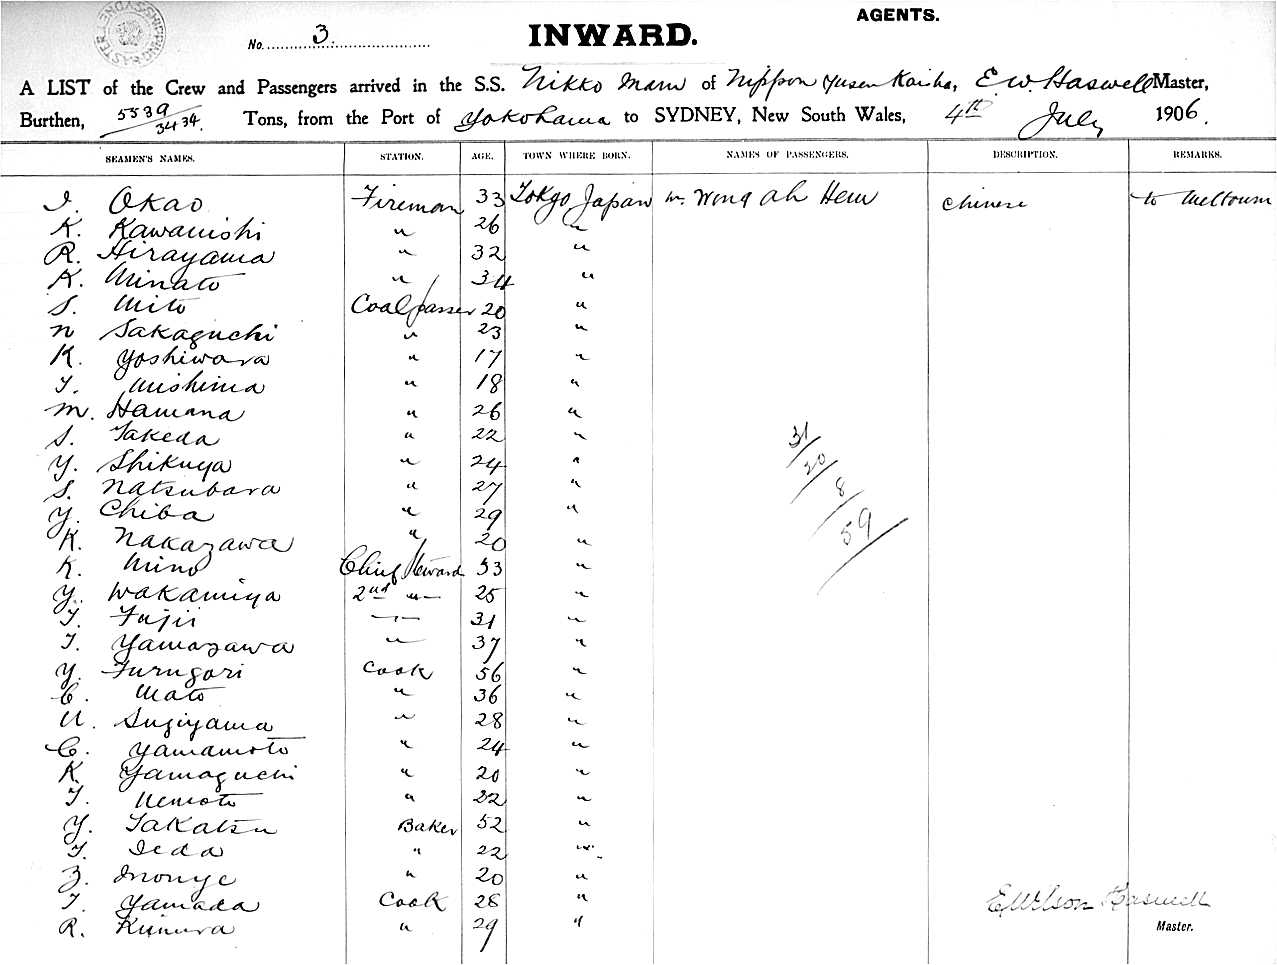 AGENTS.
No. 3. INWARD.
A LIST of the Crew and Passengers arrived in the S.S. Nikko Maru of Nippon Yusen Kaisha, E W. Haswell Master,
Burthen, 5539/3434. Tons, from the Port of Yokohama to SYDNEY, New South Wales, 4th July 1906.
SEAMEN'S NAMES. STATION. AGE. TOWN WHERE BORN. NAMES OF PASSENGERS. DESCRIPTION. REMARKS.
I. Okao Fireman 33 Tokyo Japan Wong Ah Hem Chinese to
K. Kawanishi " 26 "
R. Hirayama " 32 "
K. Minato " 34 "
S. Mito Coalpasser 20 "
N Sakaguchi " 23 "
K. Yoshiwara " 17 "
T. Mishima " 18 "
M. Hamana " 26 "
S. Takeda " 22 " 31
Y. Shikuya " 24 " 20
S. Natsubara " 27 " 8
Y. Chiba " 29 " 59
K. Nakazawa " 20 "
K. Mino Chief Steward 53 "
Y. Wakamiya 2nd " 25 "
T. Fujii " 31 "
T. Yamazawa " 37 "
Y. Furugori Cook 56 "
C. Mato " 36 "
U. Sugiyama " 28 "
C. Yamamoto " 24 "
K Yamaguchi " 20 "
T. Nemoto " 22 "
Y. Takatsu Baker 52 "
T. Ieda " 22 "
Z. Inouye " 20 "
T. Yamada Cook 28 " E Wilson Haswell
R. Kimura " 29 " Master.